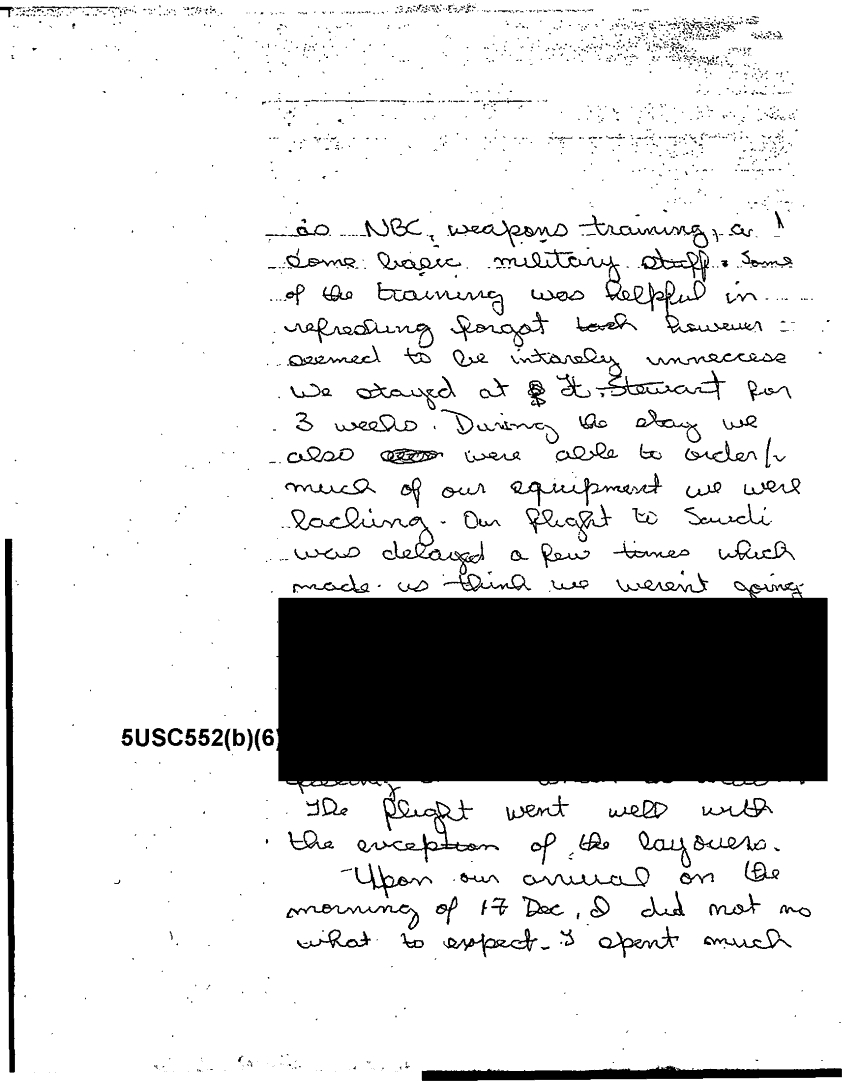 as NBC, weapons training, a
some basic military stuff. Some
of the training was helpful in
refreshing forgot however
seemed to be intarely unneccess
We stayed at Ft. Stewart for
3 weeks. During the stay we
also were able to order/
much of our equipment we were
lacking. Our flight to Saudi
was delayed a few times which
made us think we weren't going
5USC552(b)(6)
The flight went well with
the exception of the layovers.
Upon our arrival on the
morning of 17 Dec, I did not no
what to expect. I spent much